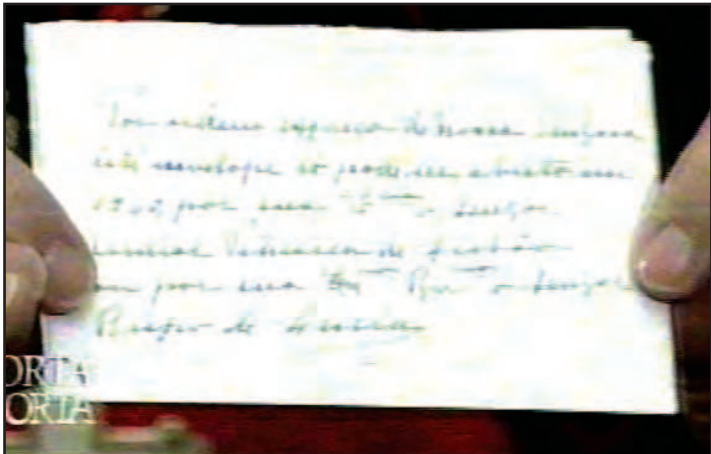 Por ordem expressa de Nossa Senhora
este envelope só pode ser aberto em
1960, por sua Emcia o Senhor
Cardeal Patriarca de Lisboa
ou por sua Ex.cia Rev.ma o Senhor
Bispo de Leiria
PORTA
PORTA